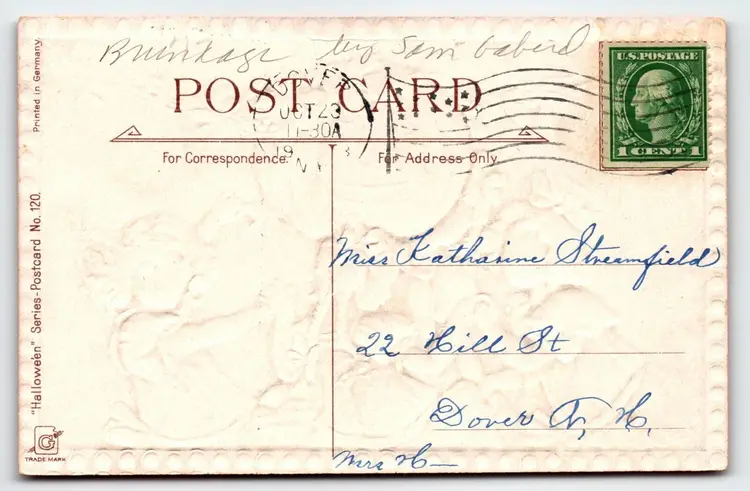 by Sam Gaberd
POST CARD
DOVER
OCT 23
11-30A
19 3
N.H.
U.S. POSTAGE
1 CENT 1
For Correspondence.
For Address Only.
Miss Katharine Streamfield
22 Hill St
Dover N, H,
Mrs H—
Printed in Germany.
"Hallowe'en" Series-Postcard No. 120.
G
TRADE MARK